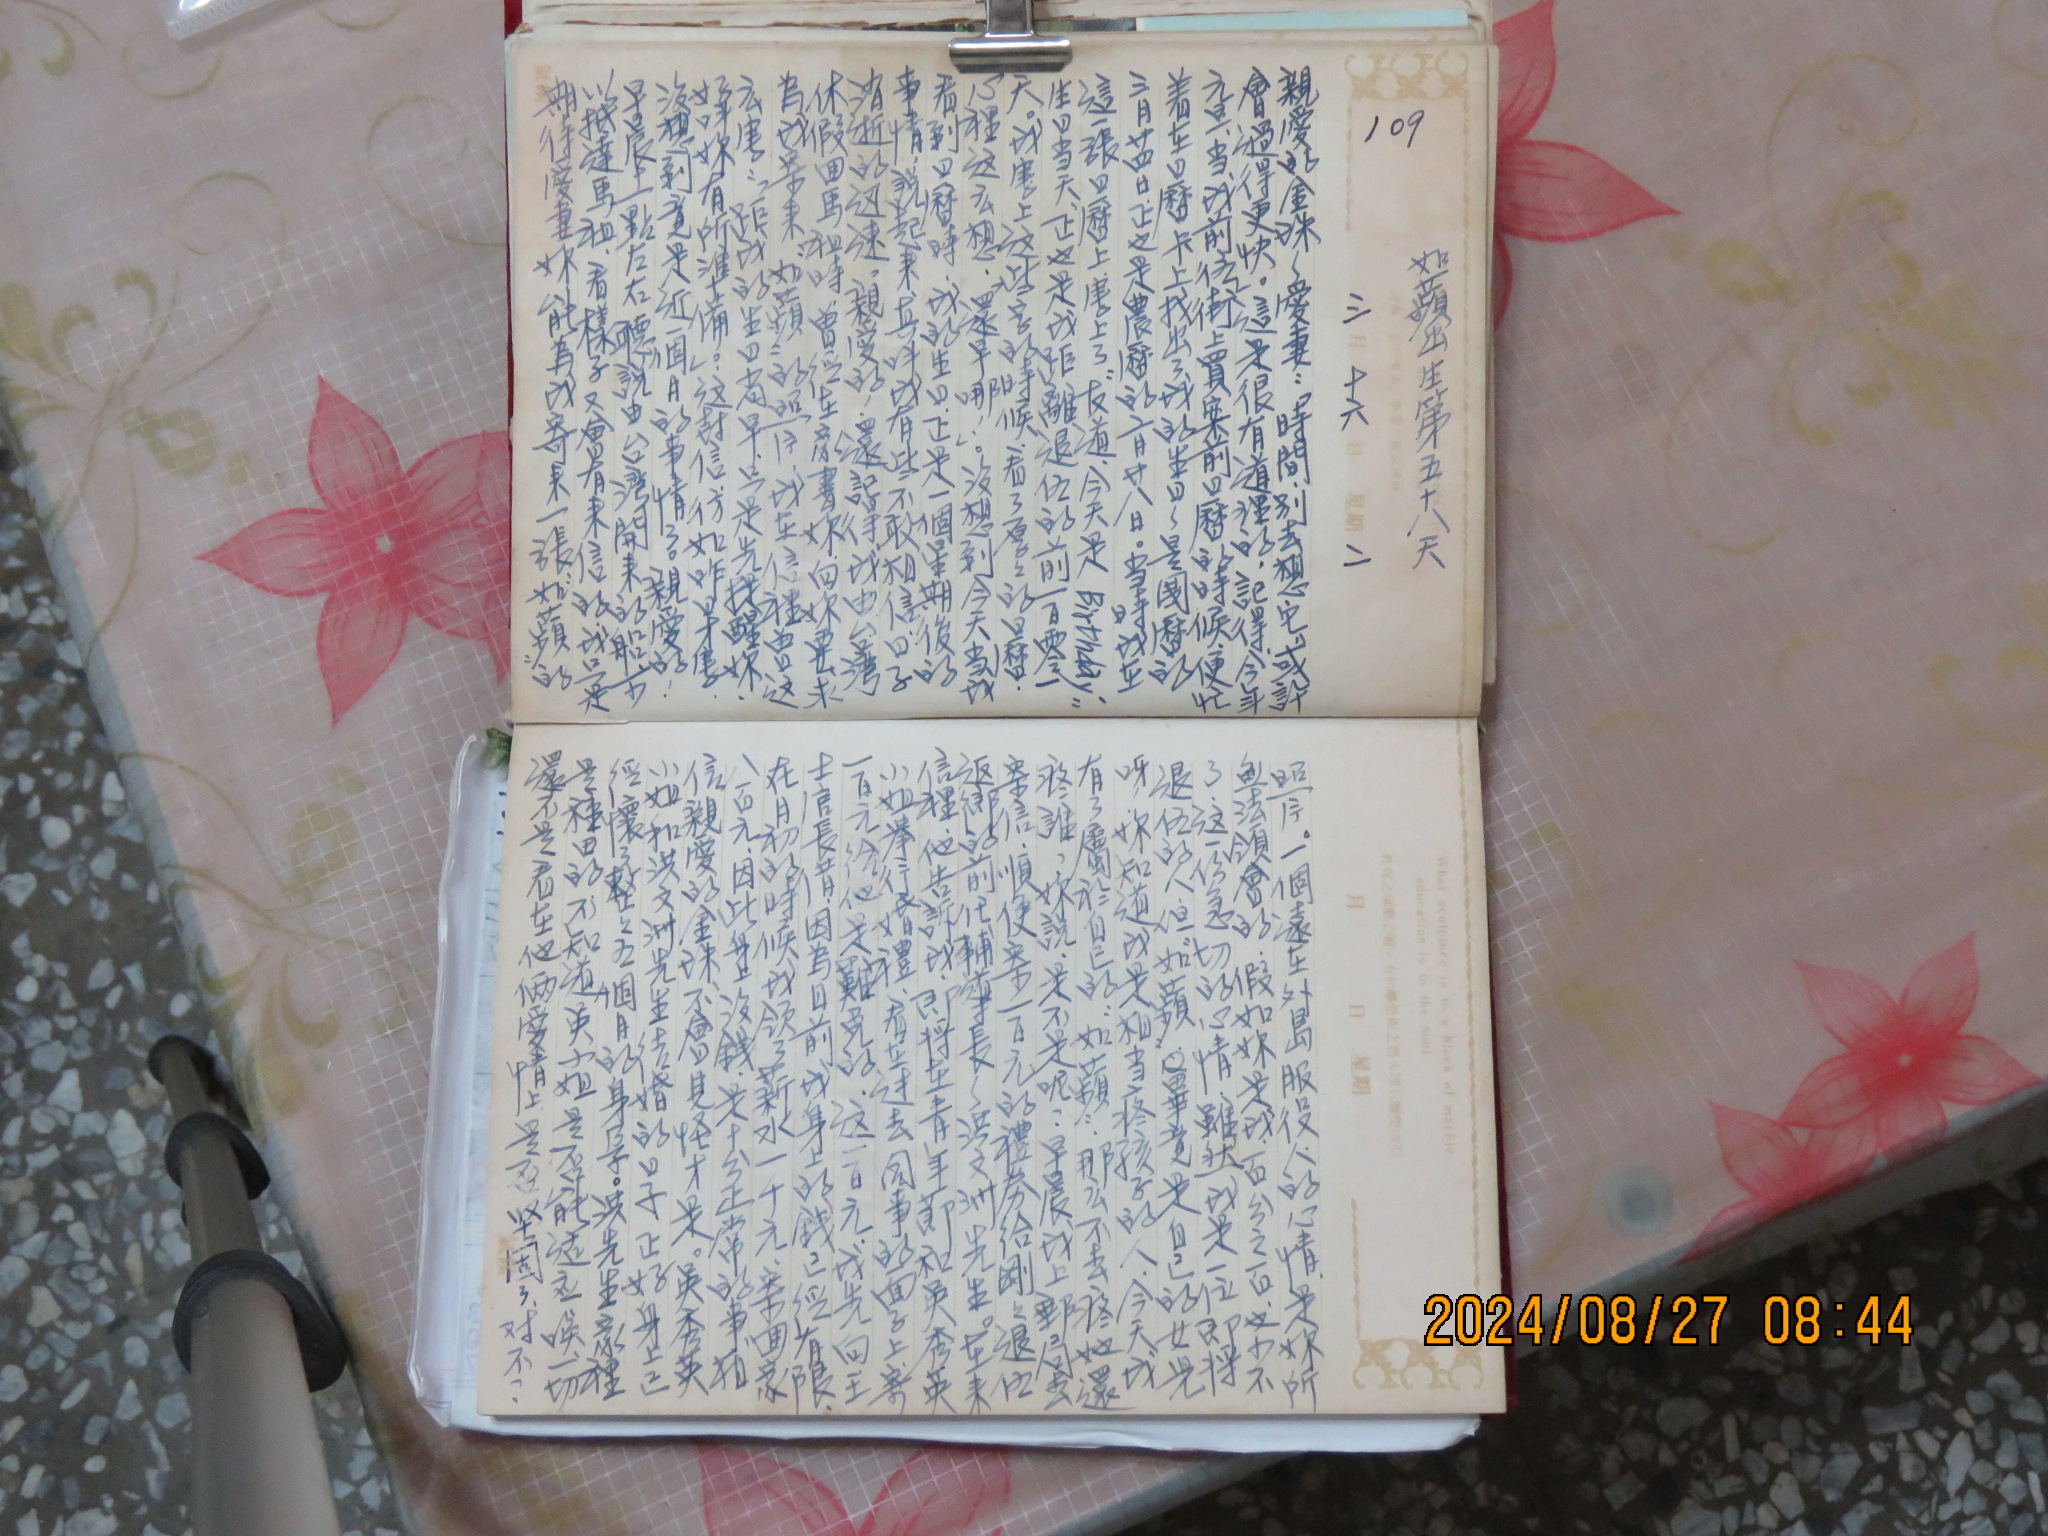 109
如蘋出生第五十八天
三月十六日 星期二
親愛的金珠～愛妻：「時間，別去想它」或許
會過得更快。這是很有道理的，記得今年
元旦，當我前往街上買案前日曆的時候，便忙
着在日曆卡上找出了我的生日～是國曆的
三月廿四日，正也是農曆的二月廿八日。當時我在
這一張日曆上，書上了"友道，今天是 Birthday"
生日當天，正也是我距離退伍的前一百零一
天。我書上這些字的時候，看了厚厚的日曆，
心裡这么想，還早哪！。沒想到今天當我
看到日曆時，我的生日，正是一個星期後的
事情，說起來真叫我有些不敢相信，日子
消逝的这速。親愛的，還記得我由台灣
休假回馬祖時，曾經在家書妳向妳要求
為我寄來"如蘋"的照片，我在信裡曾这
么書："距我的生日尚早，只是先提醒妳，
好讓妳有所準備。"这封信彷如昨早書，
沒想到竟是近一個月的事情了。親愛的！
早晨十點左右，聽說由台灣開來的船，可
以抵達馬祖，看樣子又會有來信的，我只是
期待愛妻妳能為我寄來一張"如蘋"的
What sculpture is to a block of marble
education is to the soul.
月 日 星期
照片。一個遠在外島服役人的心情，是妳所
無法領會的，假如妳是我，百分之百，也少不
了这一份急切的心情，雖然我是一位即將
退伍的人，但"如蘋"畢竟是自己的女兒
呀，妳知道我是相當疼孩子的人，今天我
有了屬於自己的"如蘋"，那么不去疼她還
疼誰，妳說，是不是呢？早晨我上郵局去
寄信，順便寄一百元的禮券給剛剛退伍
返鄉的前任輔導長～洪文洲先生。在來
信裡，他告訴我，即將在青年節和英秀英
小姐舉行婚禮，看在過去同事的面子上寄
一百元給他是難免的，这一百元，我先向王
士官長借，因為目前我身上的錢已經有限，
在月初的時候我領了薪水一千元，寄回家
八百元，因此身上沒錢是十分正常的事，相
信親愛的金珠不會見怪才是。英秀英
小姐和洪文洲先生結婚的日子，正好身上已
經懷了整整五個月的身孕。洪先生家裡
是種田的，不知道英小姐是否能适应一切
還不是看在他倆愛情上是否堅固了，对不？
2024/08/27 08:44